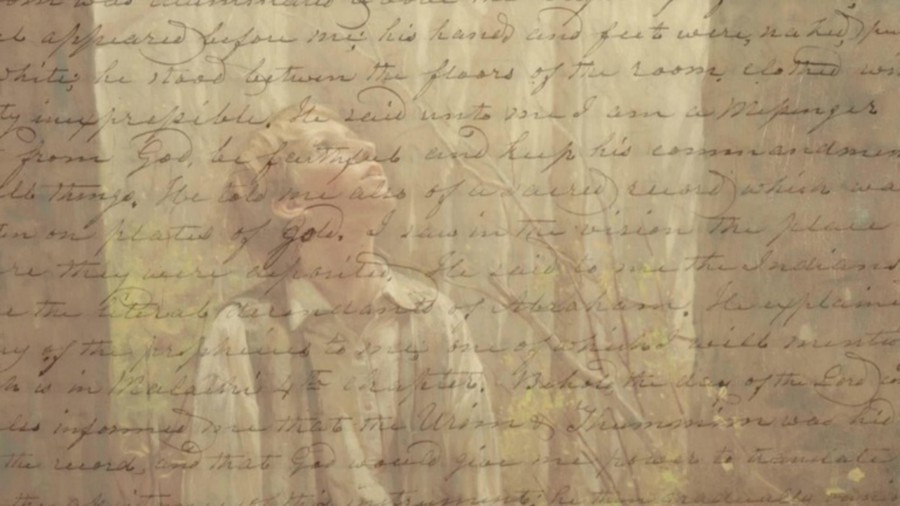 was illuminated
appeared before me; his hands and feet were naked
white; he stood between the floors of the room, clothed
inexpressible. He said unto me I am a Messenger
from God, be faithful and keep his commandmen
things. He told me also of a sacred record which wa
on plates of gold. I saw in the vision the place
they were deposited. He said to me the Indians
the literal descendants of Abraham. He explaine
of the prophecies to me; one of which I will menti
is in Malachi 4th chapter. Behold the day of the Lord
informed me that the Urim & Thummim was hid
the record, and that God would give me power to translate
this instrument. he then gradually